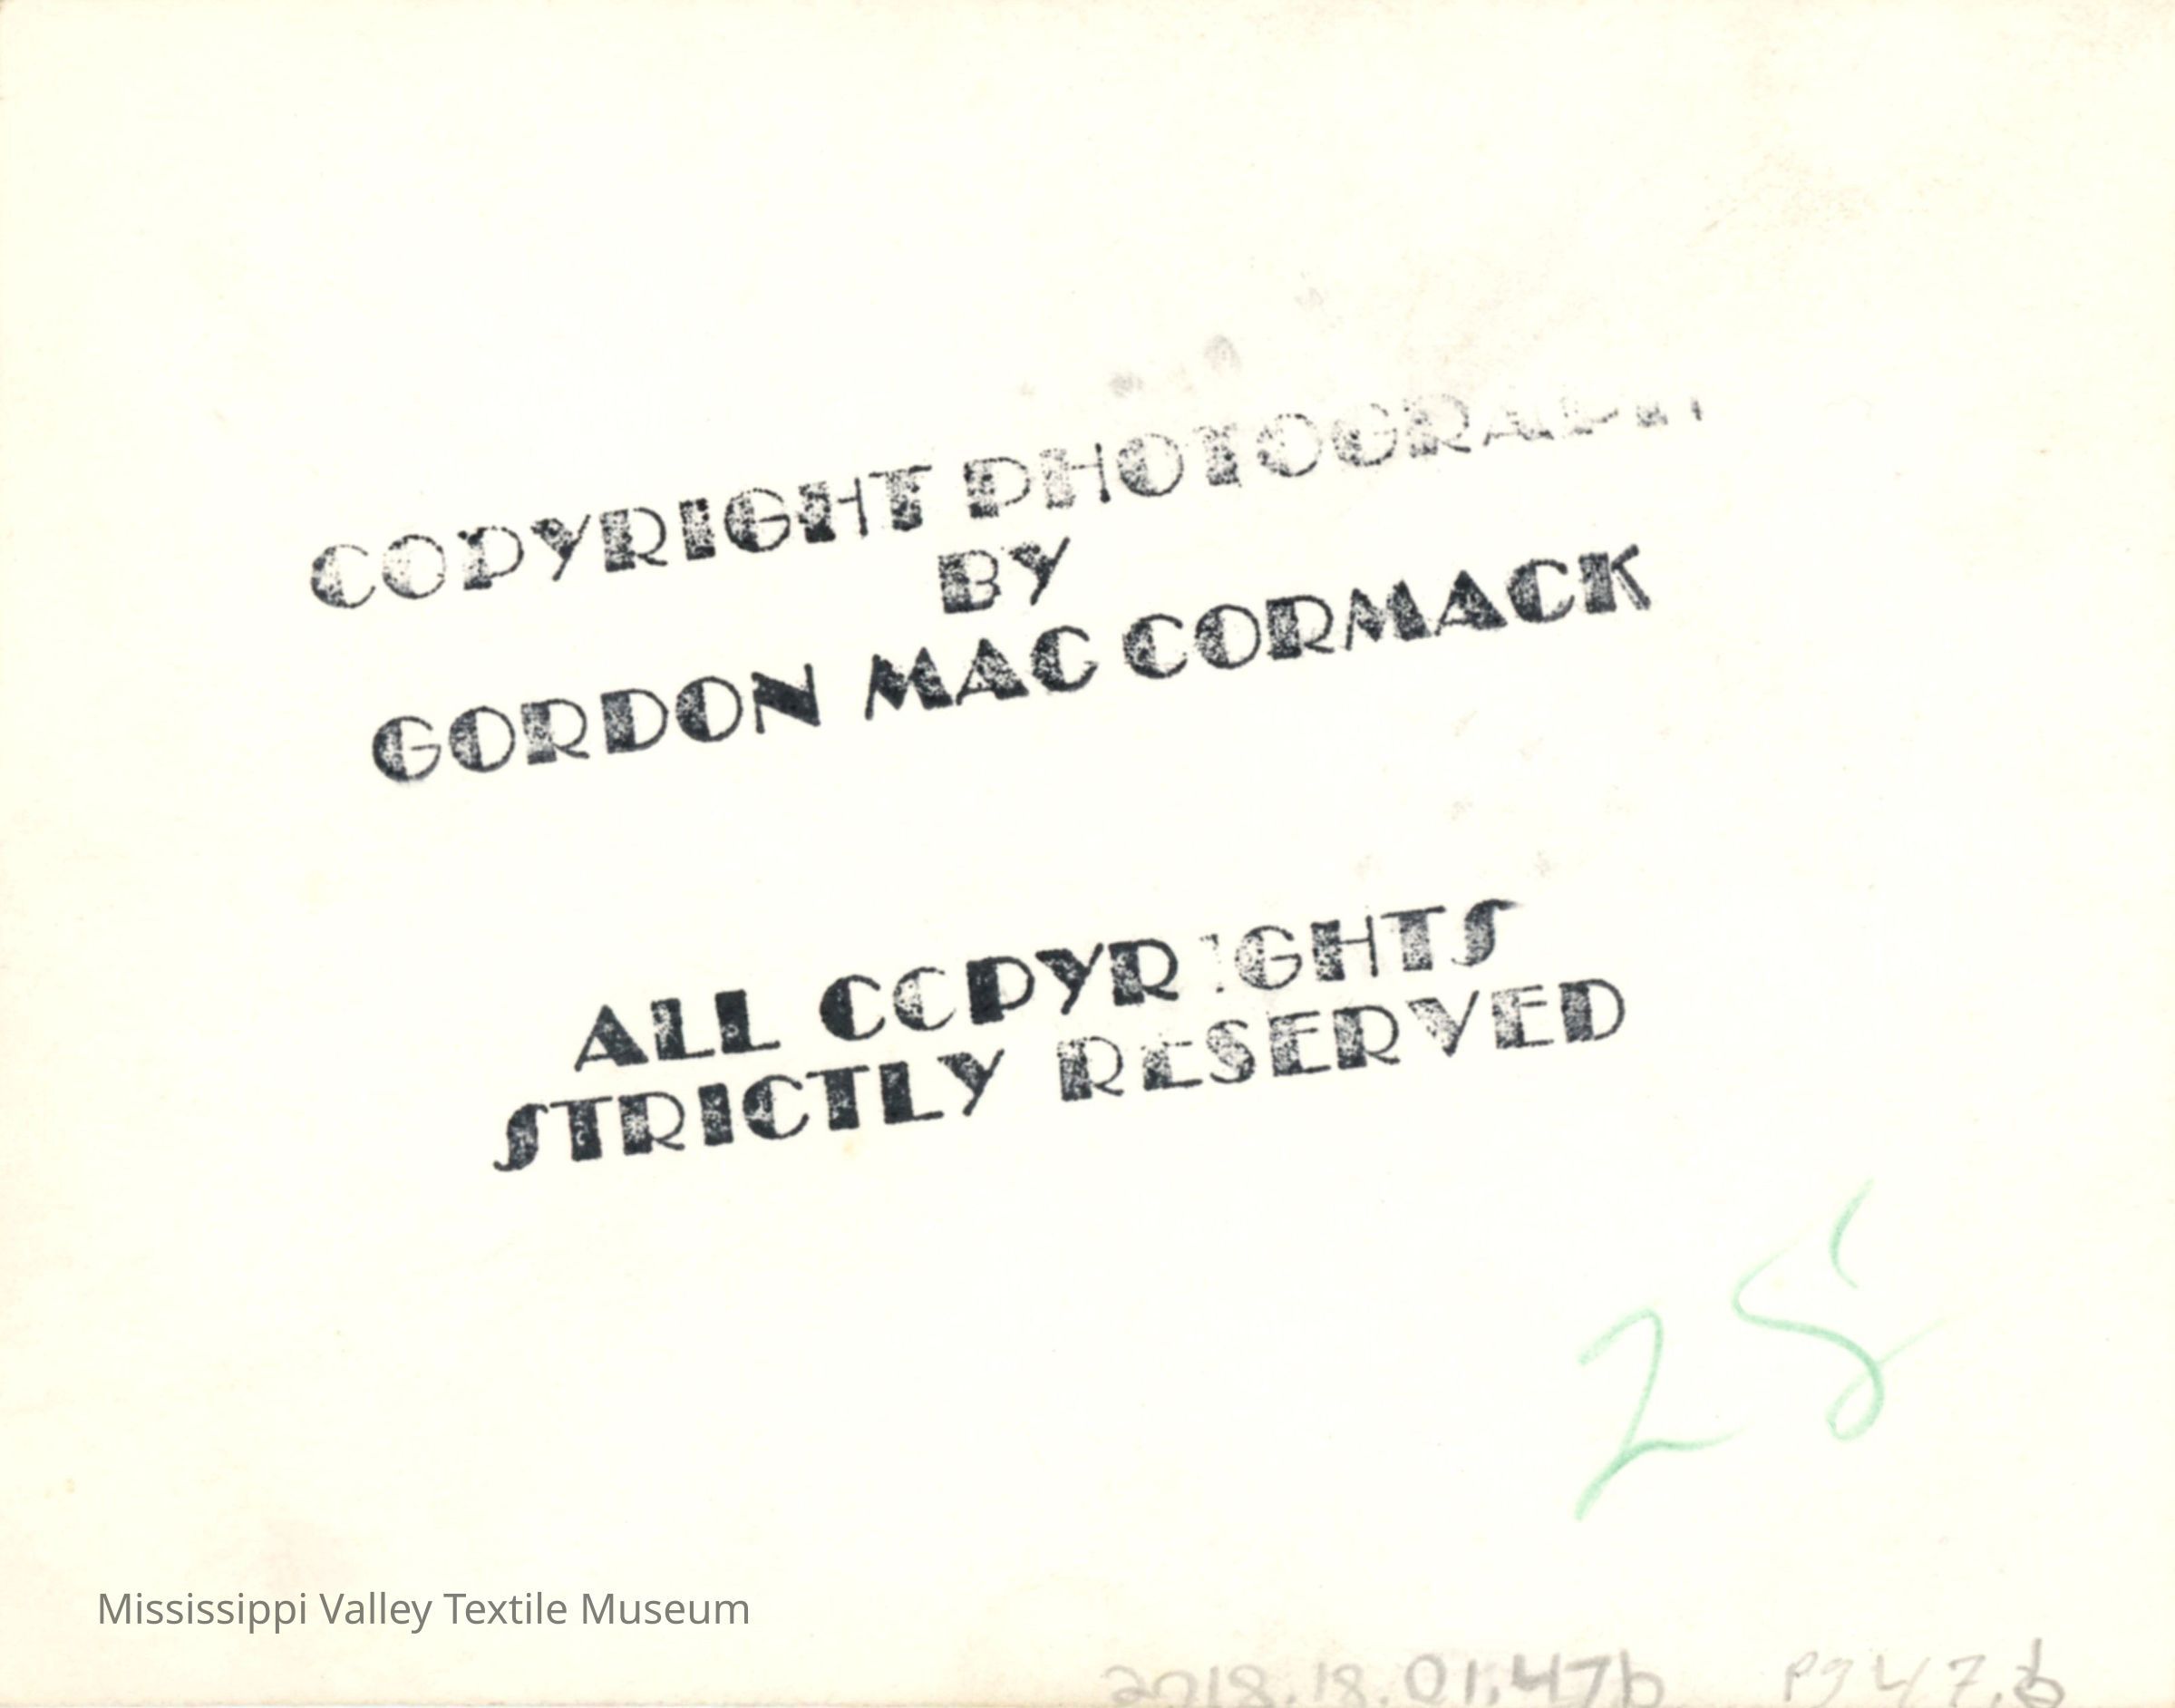 COPYRIGHT PHOTOGRAPH
BY
GORDON MAC CORMACK
ALL COPYRIGHTS
STRICTLY RESERVED
28
Mississippi Valley Textile Museum
2018.18.01.47b pg 47.b